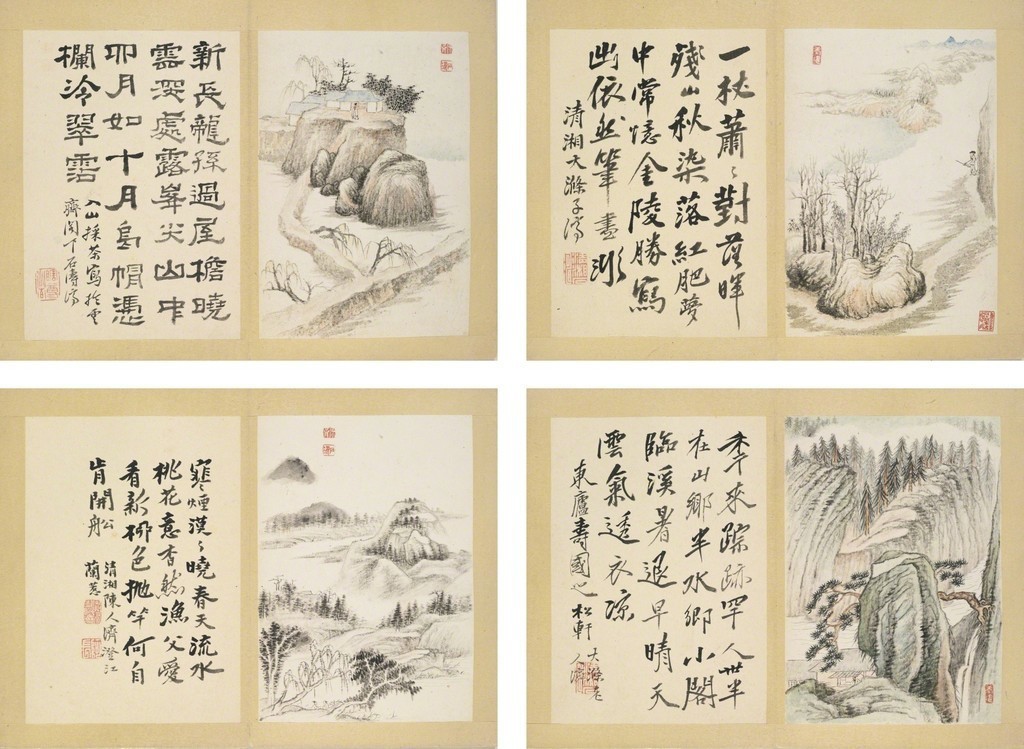 新長龍孫過屋檐曉
雲深處露峯尖山中
四月如十月烏帽憑
欄冷翠霑
入山採茶寫於雲
齋閣下石濤濟
一杖蕭〻對落暉
殘山秋染落紅肥夢
中常憶金陵勝寫
出依然筆
清湘大滌子濟
寒煙漠〻曉春天流水
桃花意杳然漁父愛
看新柳色拋竿何自
肯開船
清湘陳人濟澄江
蘭
年來踪跡罕人世半
在山鄉半水鄉小閣
臨溪暑退早晴天
雲氣透衣涼
東廬壽國也松軒
大滌
人濟